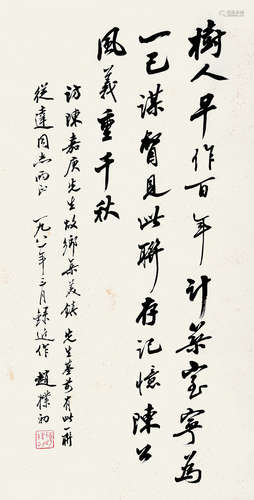 樹人早作百年計築室寧為
一己謀見此聯存記憶陳公
風義重千秋
訪陳嘉庚先生故鄉集美鎮 先生墓前有此一聯
從達同志正 一九八年三月錄近作 趙樸初